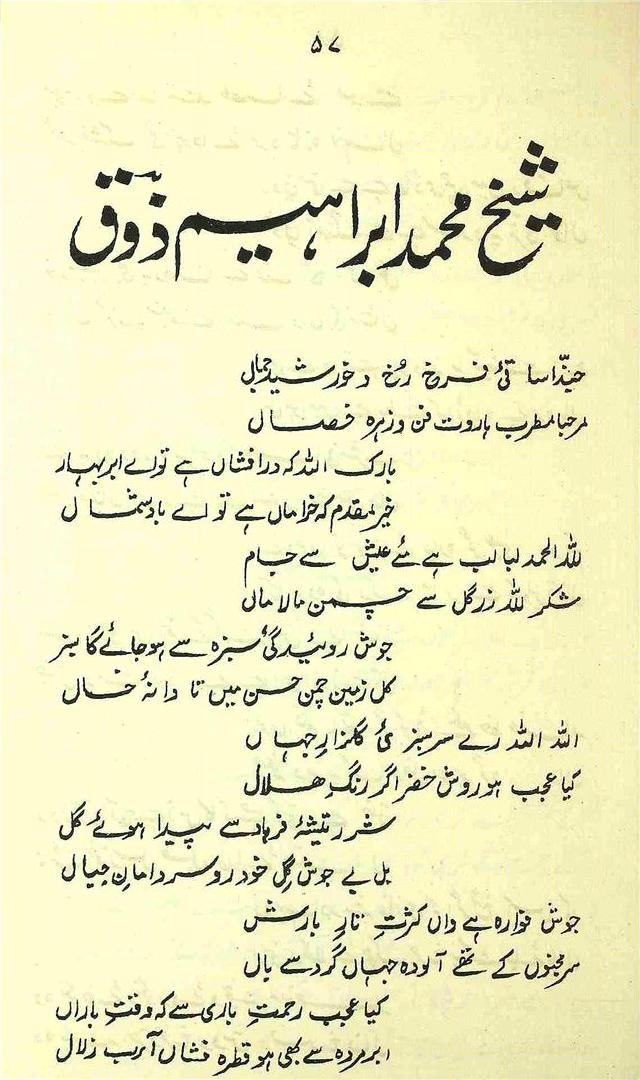 ۵۷
شیخ محمد ابراہیم ذوق
حبّذا ساقیٔ فرخ رُخ و خورشید جمال
مرحبا مطرب ہاروت فن و زہرہ خصال
بارک اللہ کہ درافشاں ہے تو اے ابر بہار
خیر مقدم کہ خراماں ہے تو اے باد شمال
للہ الحمد لبالب ہے مئے عیش سے جام
شکر للہ زر گل سے چمن مالا مال
جوش روئیدگیٔ سبزہ سے ہو جائے گا سبز
کل زمین چمن حسن میں تا دانۂ خال
اللہ اللہ رے سر سبزیٔ گلزارِ جہاں
کیا عجب ہو روش خضر اگر رنگِ ھلال
شرر تیشۂ فرہاد سے پیدا ہوئے گل
بل بے جوش گِل خود رو سر دامانِ جبال
جوش فوارہ ہے واں کثرتِ تارِ بارش
سر مجنوں کے تھے آلودہ جہاں گرد سے بال
کیا عجب رحمتِ باری سے کہ وقتِ باراں
ابر مردہ سے بھی ہو قطرہ فشاں آب زلال